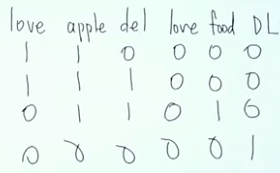 love apple del love food DL
1 1 0 0 0 0
1 1 1 0 0 0
0 1 1 0 1 0
0 0 0 0 0 1